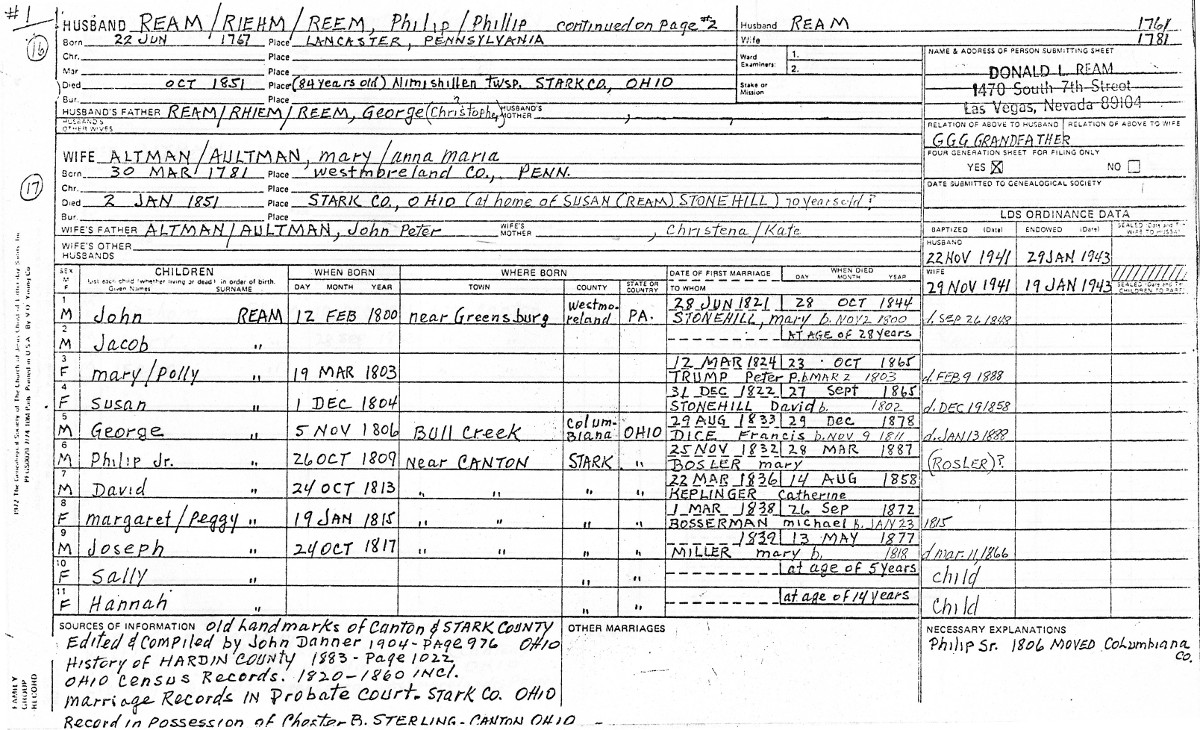 #1
HUSBAND REAM/RIEHM/REEM, Philip/Phillip continued on Page #2
Husband REAM 1761
Wife 1781
16
Born 22 JUN 1767 Place LANCASTER, PENNSYLVANIA
Chr. Place
Mar Place
Died OCT 1851 Place (84 years old) Nimishillen Twsp. STARK CO., OHIO
Bur. Place
Ward Examiners: 1.
2.
Stake or Mission
NAME & ADDRESS OF PERSON SUBMITTING SHEET
DONALD L. REAM
1470 South 7th Street
Las Vegas, Nevada 89104
HUSBAND'S FATHER REAM/RHIEM/REEM, George (Christophe) ? HUSBAND'S MOTHER , ,
HUSBAND'S OTHER WIVES
RELATION OF ABOVE TO HUSBAND RELATION OF ABOVE TO WIFE
GGG GRANDFATHER
FOUR GENERATION SHEET FOR FILING ONLY
YES X NO
DATE SUBMITTED TO GENEALOGICAL SOCIETY
WIFE ALTMAN/AULTMAN, mary/anna maria
17
Born 30 MAR 1781 Place westmoreland CO., PENN.
Chr. Place
Died 2 JAN 1851 Place STARK CO., OHIO (at home of SUSAN (REAM) STONEHILL) 70 years old?
Bur. Place
WIFE'S FATHER ALTMAN/AULTMAN, John Peter WIFE'S MOTHER , Christena/Kate
WIFE'S OTHER HUSBANDS
LDS ORDINANCE DATA
BAPTIZED (Date) ENDOWED (Date) SEALED (Date and Temple) WIFE TO HUSBAND
HUSBAND
22 NOV 1941 29 JAN 1943
WIFE
29 NOV 1941 19 JAN 1943 SEALED (Date and Temple) CHILDREN TO PARENTS
SEX M F CHILDREN WHEN BORN WHERE BORN DATE OF FIRST MARRIAGE WHEN DIED
List each child (whether living or dead) in order of birth. Given Names SURNAME DAY MONTH YEAR TOWN COUNTY STATE OR COUNTRY TO WHOM DAY MONTH YEAR
1 M John REAM 12 FEB 1800 near Greensburg westmoreland PA. 28 JUN 1821 28 OCT 1844
STONEHILL, mary b. NOV 2 1800 d. SEP 26 1848
2 M Jacob " AT AGE OF 28 years
3 F mary/Polly " 19 MAR 1803 12 MAR 1824 23 OCT 1865
TRUMP Peter P. b MAR 2 1803 d. FEB 9 1888
4 F Susan " 1 DEC 1804 31 DEC 1822 27 Sept 1865
STONEHILL David b. 1802 d. DEC 19 1858
5 M George " 5 NOV 1806 Bull Creek Columbiana OHIO 29 AUG 1833 29 Dec 1878
DICE Francis b. NOV 9 1811 d. JAN 13 1888
6 M Philip Jr. " 26 OCT 1809 Near CANTON STARK " 25 NOV 1832 28 MAR 1887
BOSLER mary (ROSLER)?
7 M David " 24 OCT 1813 " " " " 22 MAR 1836 14 AUG 1858
KEPLINGER Catherine
8 F margaret/Peggy " 19 JAN 1815 " " " " 1 MAR 1838 26 Sep 1872
BOSSERMAN michael b. JAN 23 1815
9 M Joseph " 24 OCT 1817 " " " " 1839 13 MAY 1877
MILLER mary b. 1818 d mar. 11, 1866
10 F Sally " " " at age of 5 years child
11 F Hannah " " " at age of 14 years child
SOURCES OF INFORMATION Old Landmarks of Canton & STARK COUNTY
Edited & Compiled by John Danner 1904 - PAGE 976 OHIO
History of HARDIN COUNTY 1883 - Page 1022
OHIO Census Records. 1820-1860 INCl.
marriage Records IN Probate Court - Stark Co. OHIO
Record in Possession of Chester B. STERLING - CANTON OHIO
OTHER MARRIAGES
NECESSARY EXPLANATIONS
Philip Sr. 1806 MOVED Columbiana CO.
FAMILY GROUP RECORD